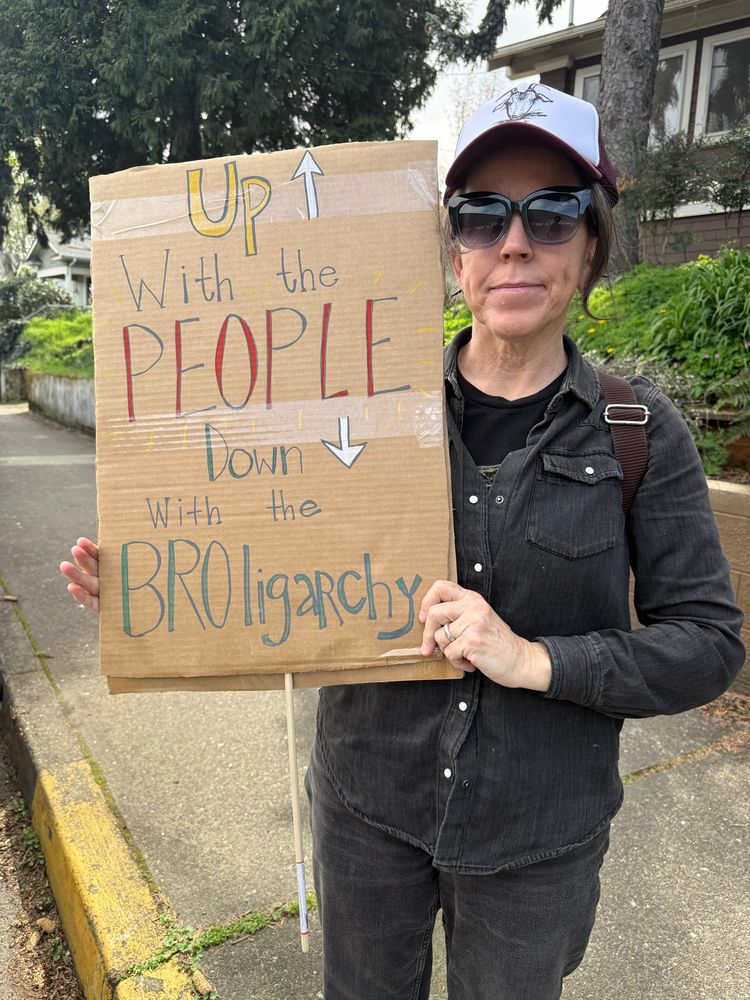 Up
With the
PEOPLE
Down
With the
BROligarchy